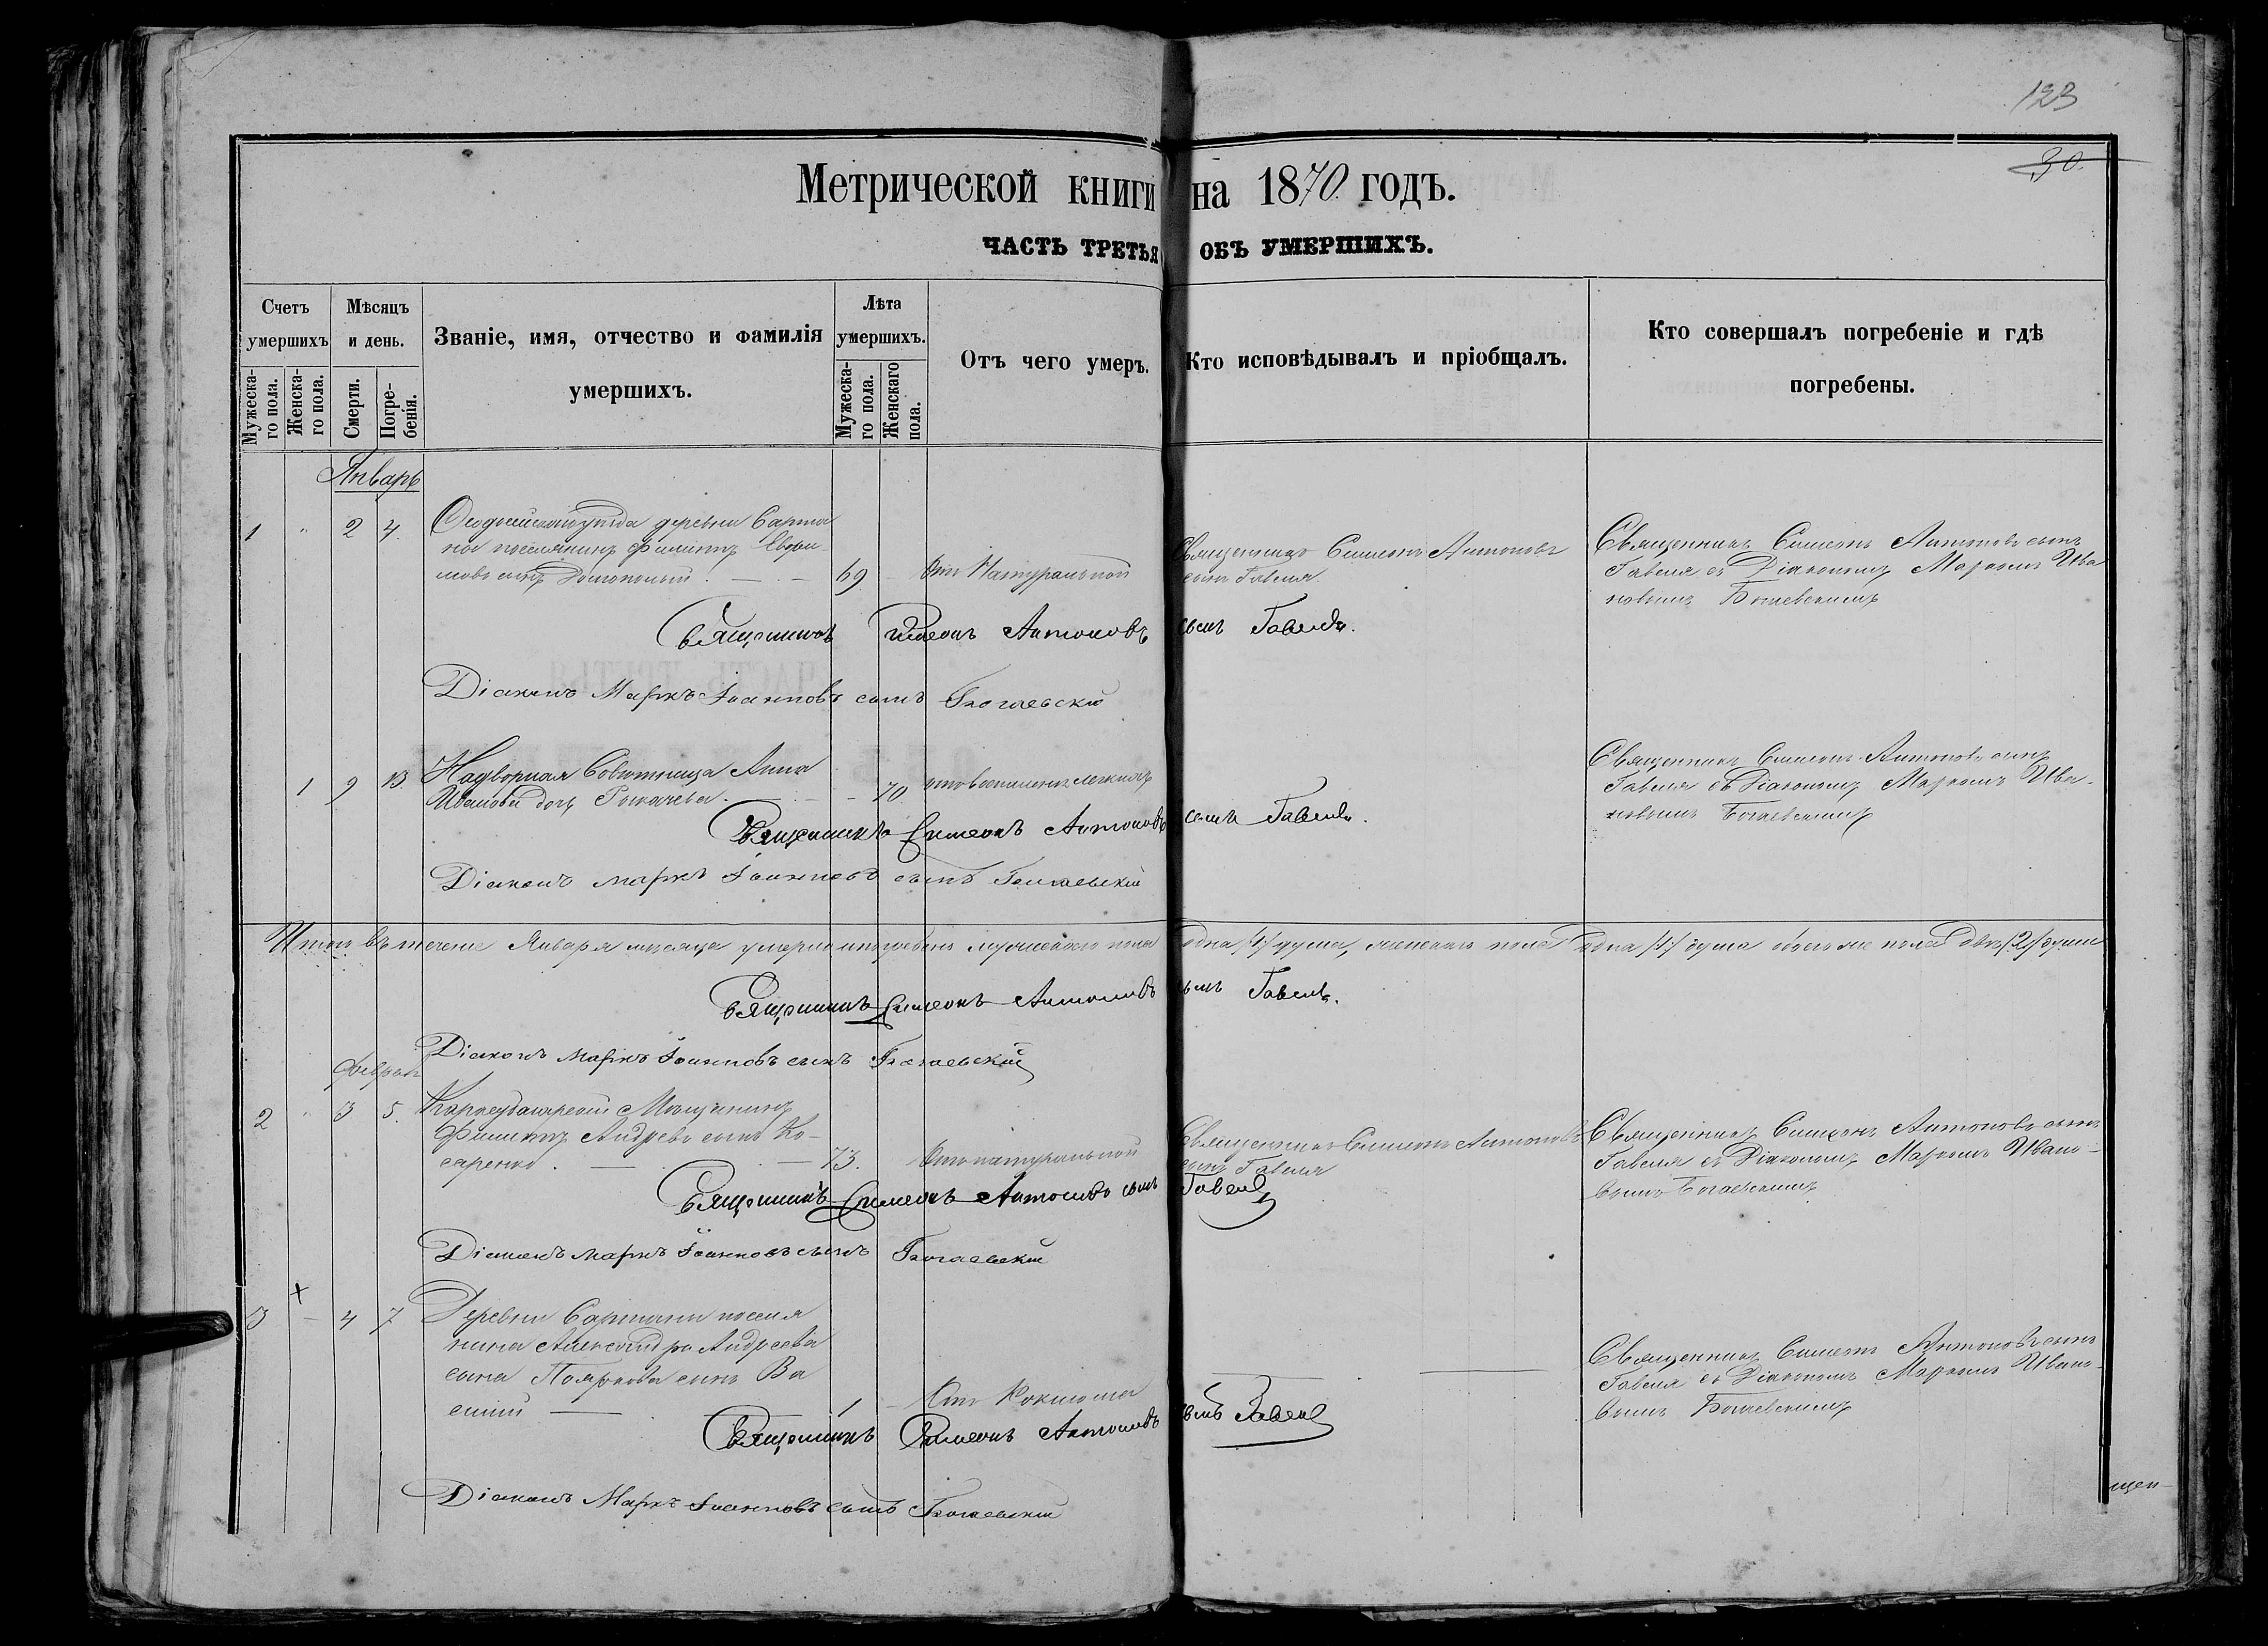 123
30.
Метрической книги на 1870 годъ.
ЧАСТЬ ТРЕТЬЯ ОБЪ УМЕРШИХЪ.
Счетъ умершихъ
Мѣсяцъ и день.
Званіе, имя, отчество и фамилія умершихъ.
Лѣта умершихъ.
Отъ чего умеръ.
Кто исповѣдывалъ и пріобщалъ.
Кто совершалъ погребеніе и гдѣ погребены.
Мужеска-го пола.
Женска-го пола.
Смерти.
Погре-бенія.
Мужеска-го пола.
Женскаго пола.
Январь
1 " 2 4.
деревни Сарта
поселянинъ Филиппъ
сынъ 69 Отъ Натуральной
Священникъ Симеонъ Антоновъ
сынъ Гавеля
Священникъ Симеонъ Антоновъ сынъ
Гавеля съ Діакономъ Маркомъ Ива
новымъ Богаевскимъ
Священникъ Симеонъ Антоновъ сынъ Гавеля.
Діаконъ Маркъ Іоанновъ сынъ Богаевскій
1 9 13. Надворная Совѣтница Анна
Иванова дочь 70
Священникъ Симеонъ Антоновъ сынъ
Гавеля съ Діакономъ Маркомъ Ива-
новымъ Богаевскимъ
Священникъ Симеонъ Антоновъ сынъ Гавеля.
Діаконъ Маркъ Іоанновъ сынъ Богаевскій
Итого въ теченіе Января мѣсяца умерло и погребено мужескаго пола одна /1/ душа, женскаго пола одна /1/ душа обоего же пола двѣ /2/ души
Священникъ Симеонъ Антоновъ сынъ Гавеля.
Діаконъ Маркъ Іоанновъ сынъ Богаевскій
Февраль
2 " 3 5. Карасубазарскій Мѣщанинъ
Филиппъ Андреевъ сынъ Ко-
саренко. 73. Отъ натуральной
Священникъ Симеонъ Антоновъ
сынъ Гавеля
Священникъ Симеонъ Антоновъ сынъ
Гавеля съ Діакономъ Маркомъ Ивано-
вымъ Богаевскимъ
Священникъ Симеонъ Антоновъ сынъ Гавеля
Діаконъ Маркъ Іоанновъ сынъ Богаевскій
×
3 – 4 7 Деревни Сартаны поселя
нина Александра Андреева
сына Пояркова сынъ Ва
силій 1 Отъ Коклюша
Священникъ Симеонъ Антоновъ сынъ
Гавеля съ Діакономъ Маркомъ Ивано-
вымъ Богаевскимъ
Священникъ Симеонъ Антоновъ сынъ Гавеля
Діаконъ Маркъ Іоанновъ сынъ Богаевскій
щен-